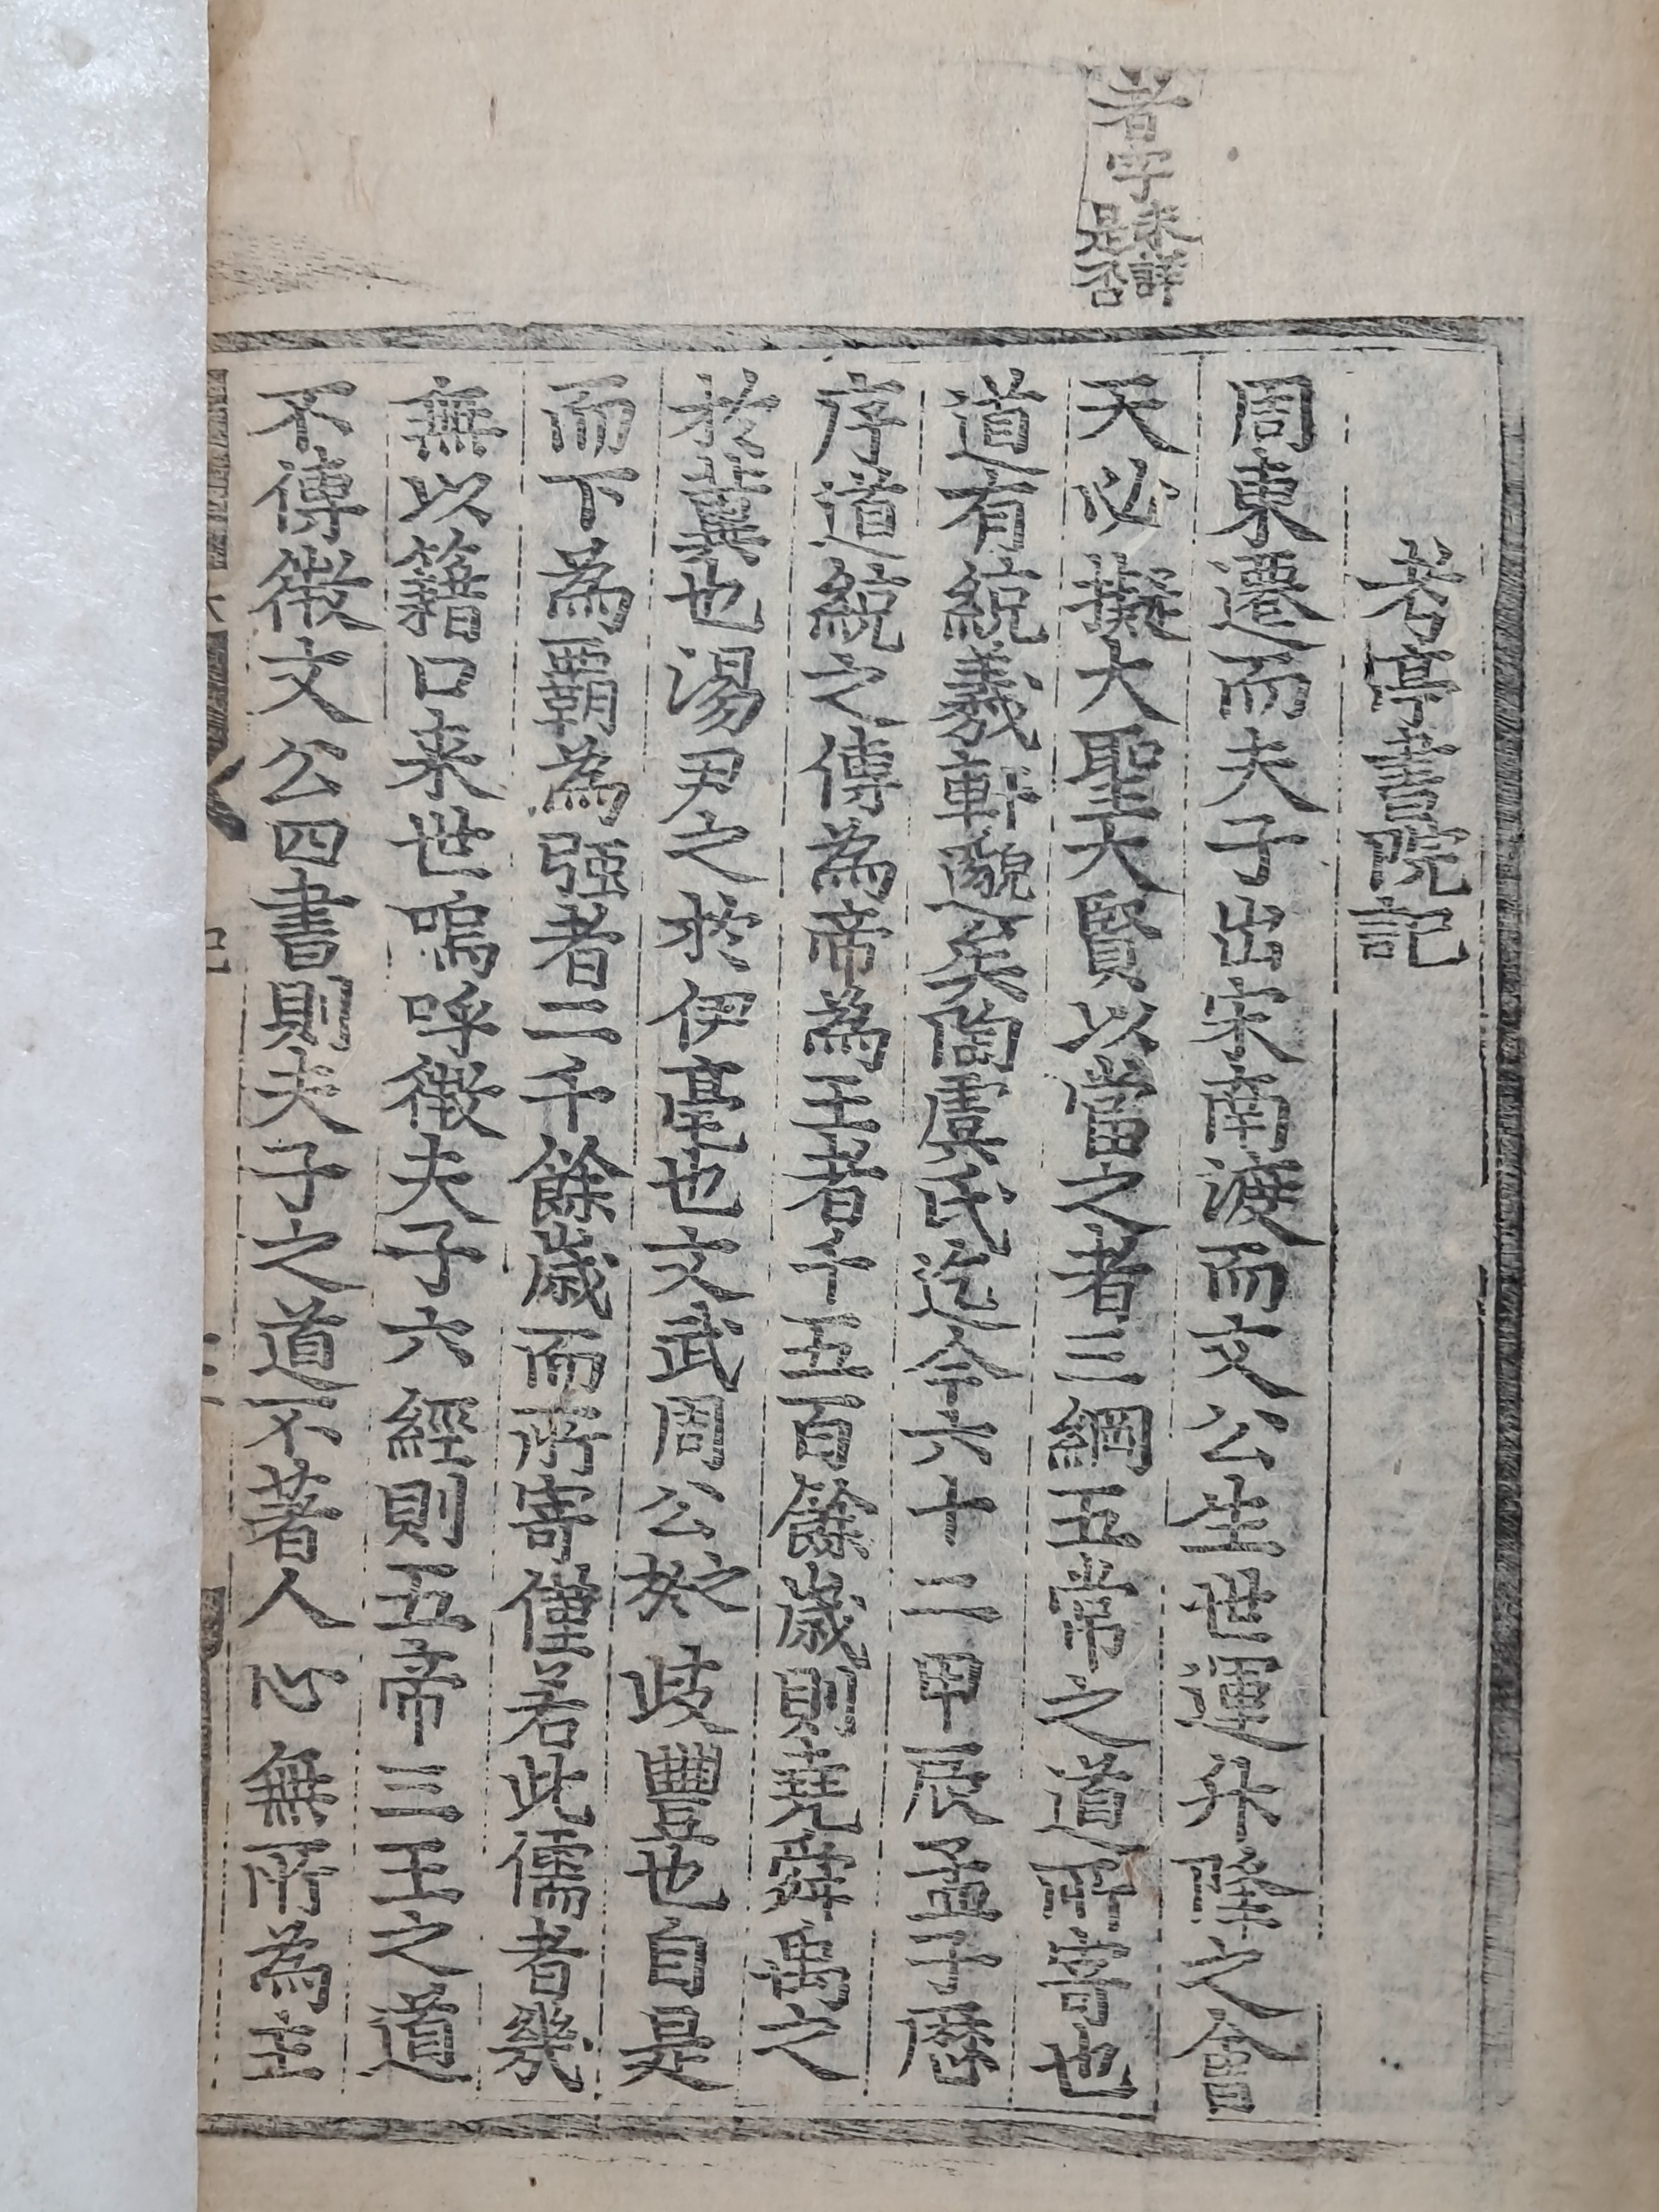 者字未詳是否
考亭書院記
周東遷而夫子出宋南渡而文公生世運升降之會
天必擬大聖大賢以當之者三綱五常之道所寄也
道有統羲軒邈矣陶虞氏迄今六十二甲辰孟子歷
序道統之傳為帝為王者千五百餘歲則堯舜禹之
於冀也湯尹之於伊亳也文武周公之於岐豐也自是
而下為霸為強者二千餘歲而所寄僅若此儒者幾
無以籍口来世嗚呼微夫子六經則五帝三王之道
不傳微文公四書則夫子之道不著人心無所為主